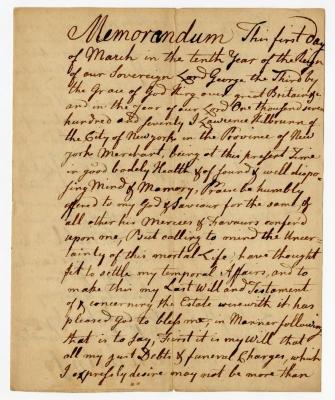 Memorandum This first Day
of March in the tenth Year of the Reign
of our Sovereign Lord George the Third by
the Grace of God King over great Britain &c
and in the Year of our Lord One thousand seven
hundred and seventy I Lawrence Kilbrunn of
the City of New york in the Province of New
york Merchant, being at this present Time
in good bodely Health & of sound & well dispo-
sing Mind & Memory, Praise be humbly
offerd to my God & Saviour for the same, &
all other his Mercies & Favours conferd
upon me, But calling to mind the Uncer-
tainty of this mortal Life, have thought
fit to settle my temporal Affairs, and to
make this my Last Will and Testament
of & concerning the Estate wherewith it has
pleased God to bless me, in Manner following
that is to say, First it is my Will that
all my just Debts & funeral Charges, which
I expressly desire may not be more than